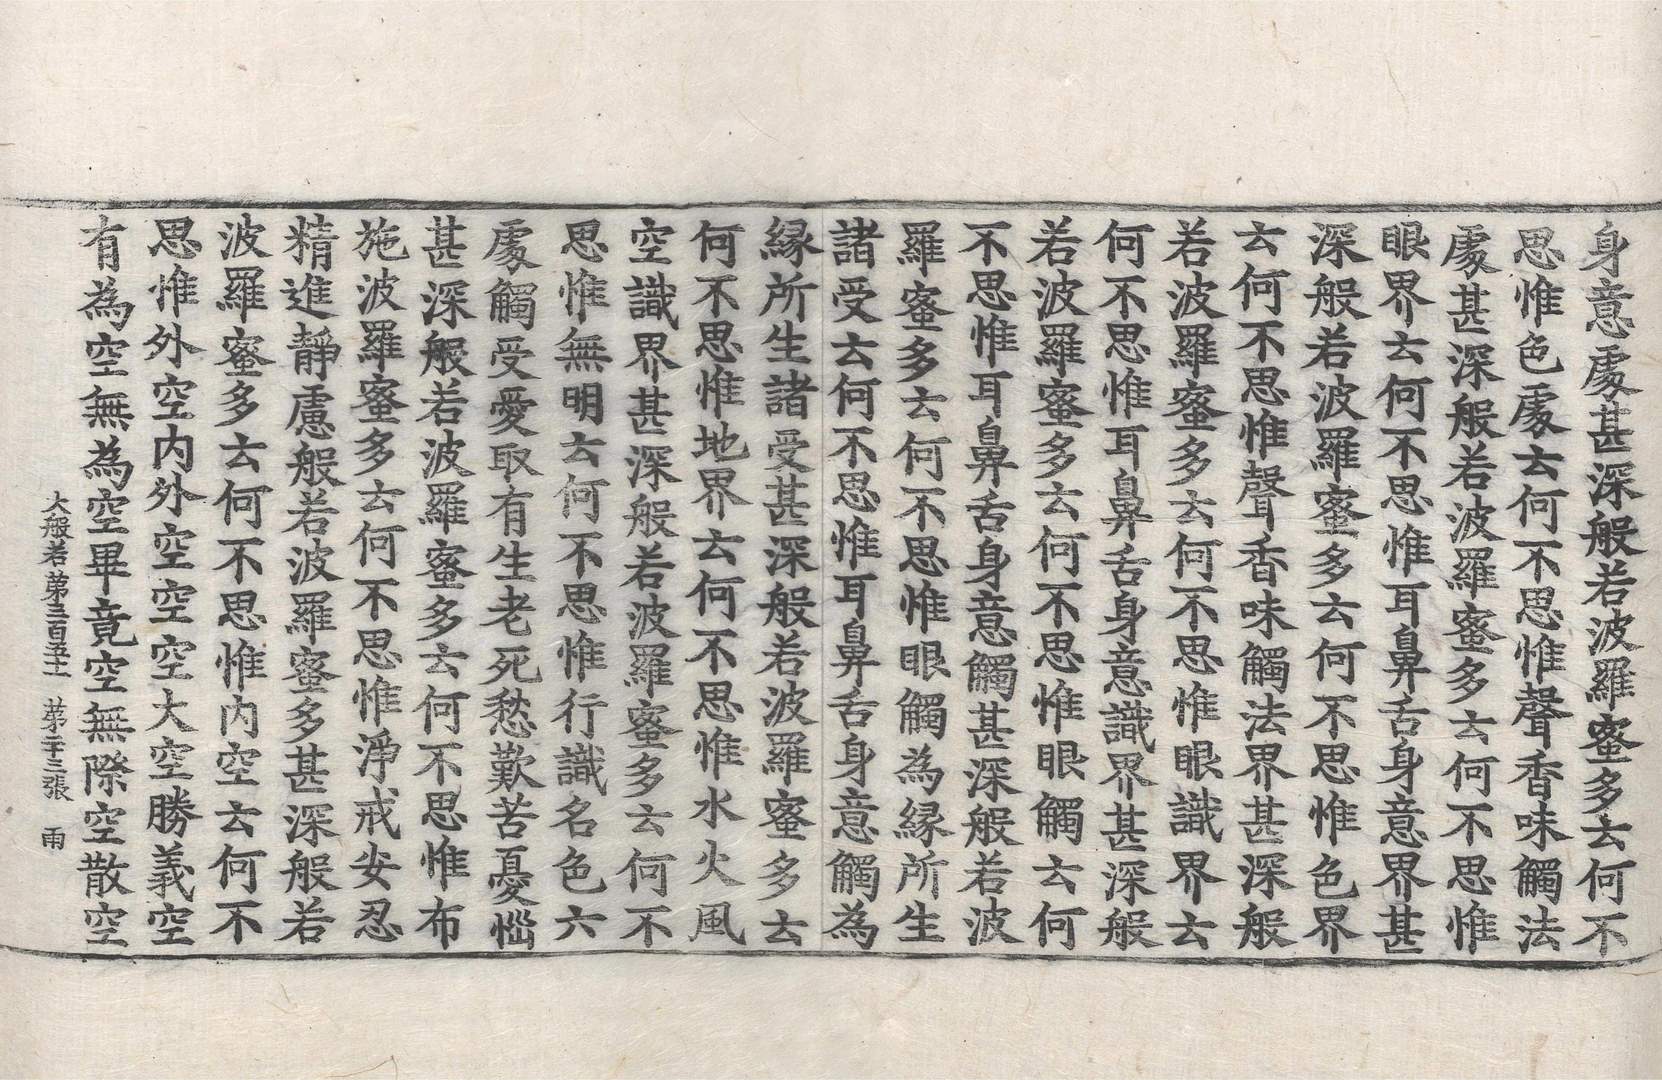 身意處甚深般若波羅蜜多云何不
思惟色處云何不思惟聲香味觸法
處甚深般若波羅蜜多云何不思惟
眼界云何不思惟耳鼻舌身意界甚
深般若波羅蜜多云何不思惟色界
云何不思惟聲香味觸法界甚深般
若波羅蜜多云何不思惟眼識界云
何不思惟耳鼻舌身意識界甚深般
若波羅蜜多云何不思惟眼觸云何
不思惟耳鼻舌身意觸甚深般若波
羅蜜多云何不思惟眼觸為緣所生
諸受云何不思惟耳鼻舌身意觸為
緣所生諸受甚深般若波羅蜜多云
何不思惟地界云何不思惟水火風
空識界甚深般若波羅蜜多云何不
思惟無明云何不思惟行識名色六
處觸受愛取有生老死愁歎苦憂惱
甚深般若波羅蜜多云何不思惟布
施波羅蜜多云何不思惟淨戒安忍
精進靜慮般若波羅蜜多甚深般若
波羅蜜多云何不思惟內空云何不
思惟外空內外空空空大空勝義空
有為空無為空畢竟空無際空散空
大般若第三百五十一 第二十三張 雨